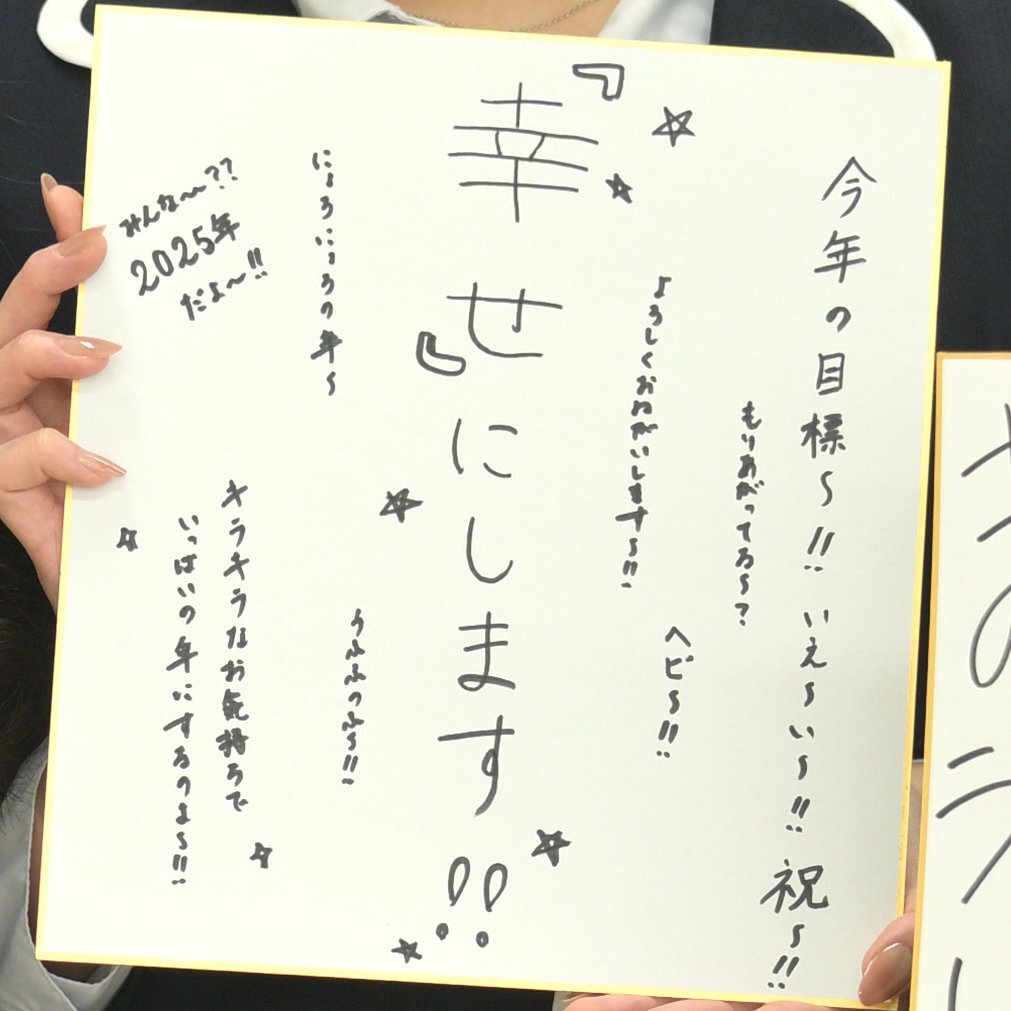 今年の目標〜!! いぇ〜い〜!! 祝〜!!
もりあがってる〜?
ヘビ〜!!
よろしくおねがいします〜!!
『幸せ』にします!!
うふふっふ〜!!
にょろにょろの年〜
キラキラなお気持ちで
いっぱいの年にするのよ〜!!
みんな〜??
2025年
だよ〜!!